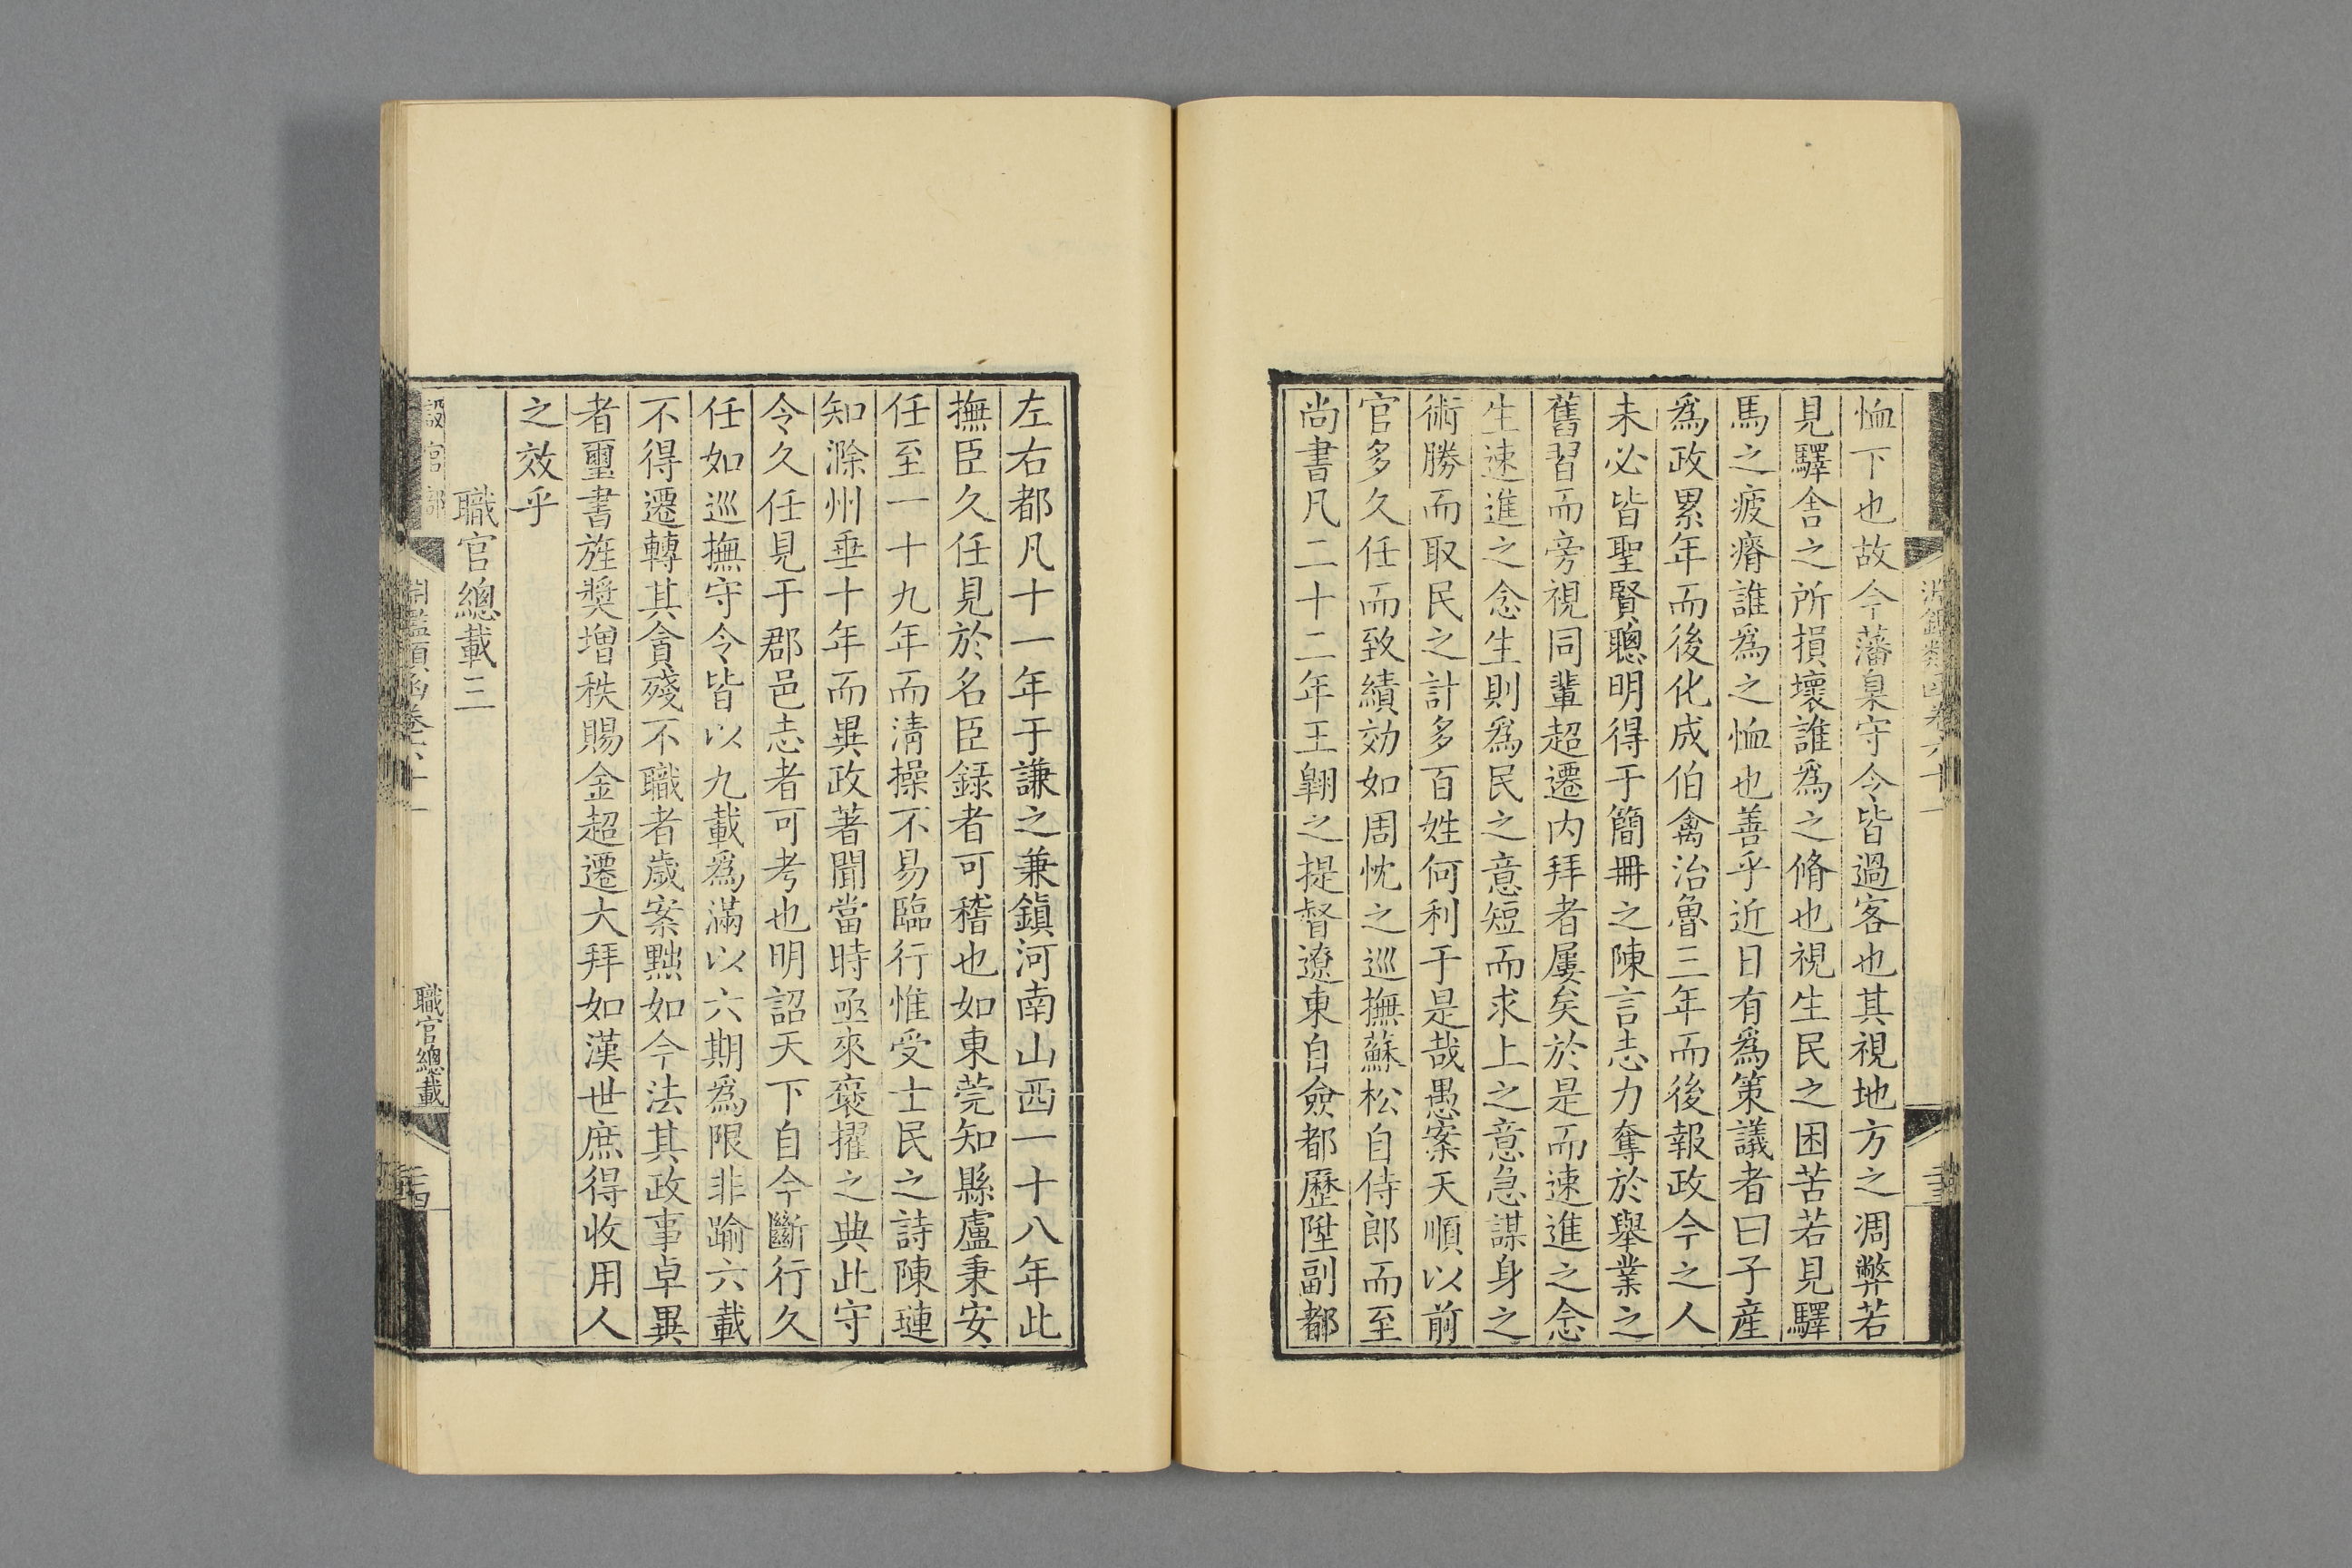 恤下也故今藩臬守令皆過客也其視地方之凋弊若
見驛舍之所損壞誰爲之脩也視生民之困苦若見驛
馬之疲瘠誰爲之恤也善乎近日有爲策議者曰子産
爲政累年而後化成伯禽治魯三年而後報政今之人
未必皆聖賢聰明得于簡冊之陳言志力奪於舉業之
舊習而旁視同輩超遷内拜者屢矣於是而速進之念
生速進之念生則爲民之意短而求上之意急謀身之
術勝而取民之計多百姓何利于是哉愚案天順以前
官多久任而致績効如周忱之巡撫蘇松自侍郎而至
尚書凡二十二年王翺之提督遼東自僉都歷陞副都
左右都凡十一年于謙之兼鎮河南山西一十八年此
撫臣久任見於名臣録者可稽也如東莞知縣盧秉安
任至一十九年而清操不易臨行惟受士民之詩陳璉
知滁州垂十年而異政著聞當時亟來褒擢之典此守
令久任見于郡邑志者可考也明詔天下自今斷行久
任如巡撫守令皆以九載爲滿以六期爲限非踰六載
不得遷轉其貪殘不職者歲案黜如今法其政事卓異
者璽書旌奬增秩賜金超遷大拜如漢世庶得收用人
之效乎
職官總載三
設官部
淵鑑類函卷六十一
職官總載
二十四